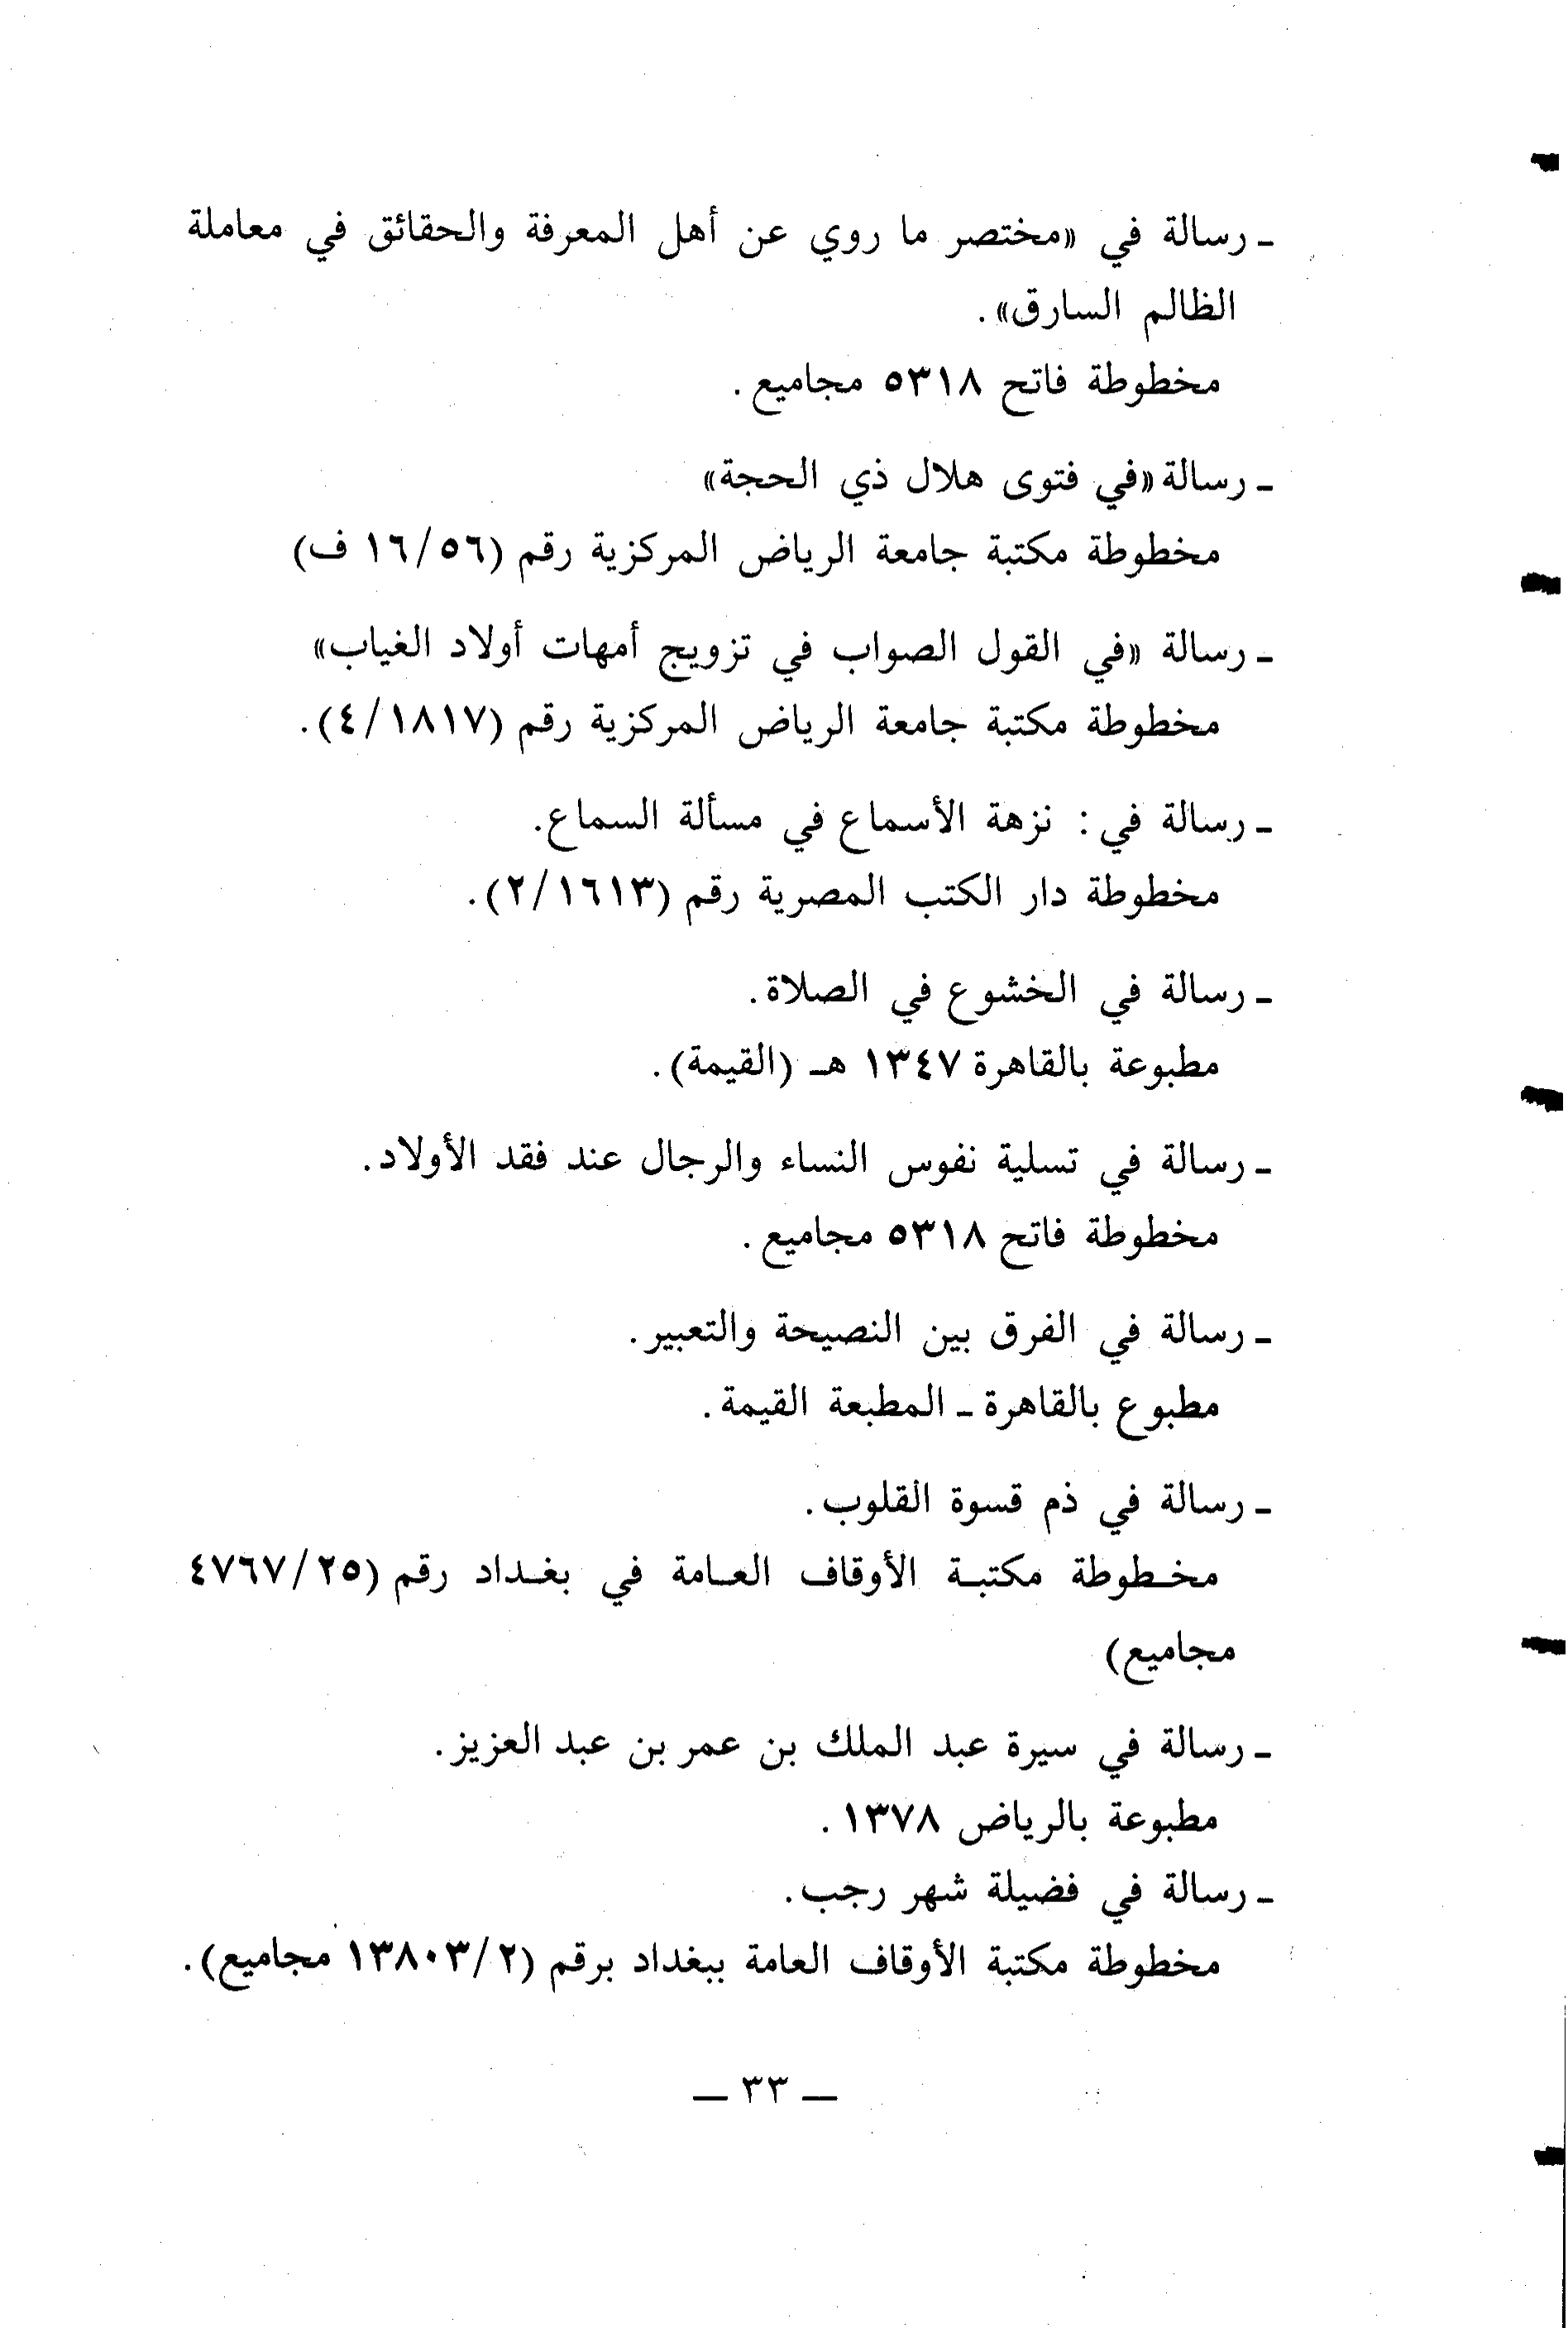 ـ رسالة في «مختصر ما روي عن أهل المعرفة والحقائق في معاملة
الظالم السارق».
مخطوطة فاتح ٥٣١٨ مجاميع.
ـ رسالة «في فتوى هلال ذي الحجة»
مخطوطة مكتبة جامعة الرياض المركزية رقم (١٦/٥٦ ف)
ـ رسالة «في القول الصواب في تزويج أمهات أولاد الغياب»
مخطوطة مكتبة جامعة الرياض المركزية رقم (٤/١٨١٧).
ـ رسالة في: نزهة الأسماع في مسألة السماع.
مخطوطة دار الكتب المصرية رقم (٢/١٦١٣).
ـ رسالة في الخشوع في الصلاة.
مطبوعة بالقاهرة ١٣٤٧ هـ (القيمة).
ـ رسالة في تسلية نفوس النساء والرجال عند فقد الأولاد.
مخطوطة فاتح ٥٣١٨ مجاميع.
ـ رسالة في الفرق بين النصيحة والتعبير.
مطبوع بالقاهرة ـ المطبعة القيمة.
ـ رسالة في ذم قسوة القلوب.
مخطوطة مكتبة الأوقاف العامة في بغداد رقم (٤٧٦٧/٢٥
مجاميع)
ـ رسالة في سيرة عبد الملك بن عمر بن عبد العزيز.
مطبوعة بالرياض ١٣٧٨.
ـ رسالة في فضيلة شهر رجب.
مخطوطة مكتبة الأوقاف العامة ببغداد برقم (١٣٨٠٣/٢ مجاميع).
— ٣٣ —